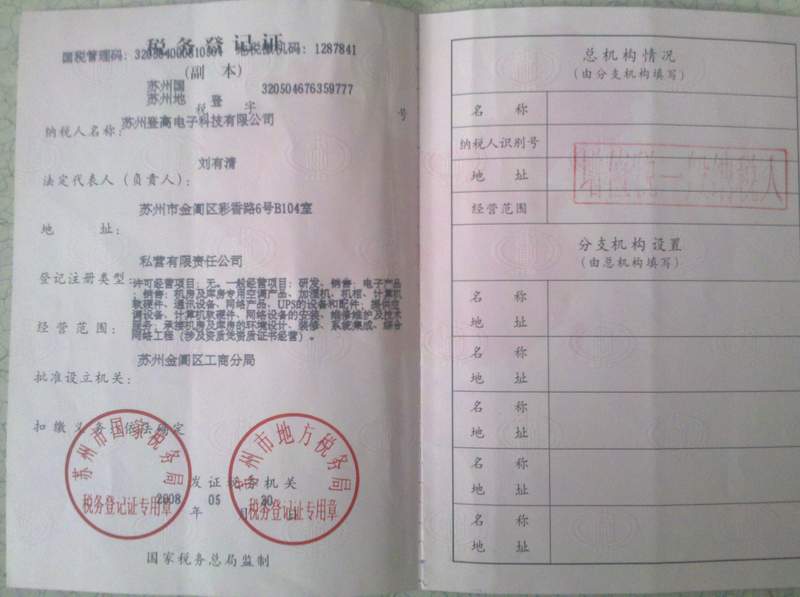 税务登记证
国税管理码：
1287841
(副 本)
苏州国
苏州地
税 登 字
320504676359777
号
纳税人名称：
苏州登高电子科技有限公司
刘有清
法定代表人（负责人）：
苏州市金阊区彩香路6号B104室
地 址：
私营有限责任公司
登记注册类型：
许可经营项目：无。一般经营项目：研发、销售：电子产品
；销售：机房及库房专用空调产品、加湿机、机柜、计算机
软硬件、通讯设备、网络产品、UPS的设备和配件；提供空
调设备、计算机软硬件、网络设备的安装、维修维护及技术
服务，承接机房及库房的环境设计、装修、系统集成、综合
网络工程（涉及资质凭资质证书经营）。
经营范围：
苏州金阊区工商分局
批准设立机关：
扣缴义务：依法确定
苏州市国家税务局
税务登记证专用章
苏州市地方税务局
税务登记证专用章
发证税务机关
2008 05 30
年 月 日
国家税务总局监制
总机构情况
(由分支机构填写)
名 称
纳税人识别号
地 址
经营范围
增值税一般纳税人
分支机构设置
(由总机构填写)
名 称
地 址
名 称
地 址
名 称
地 址
名 称
地 址
名 称
地 址